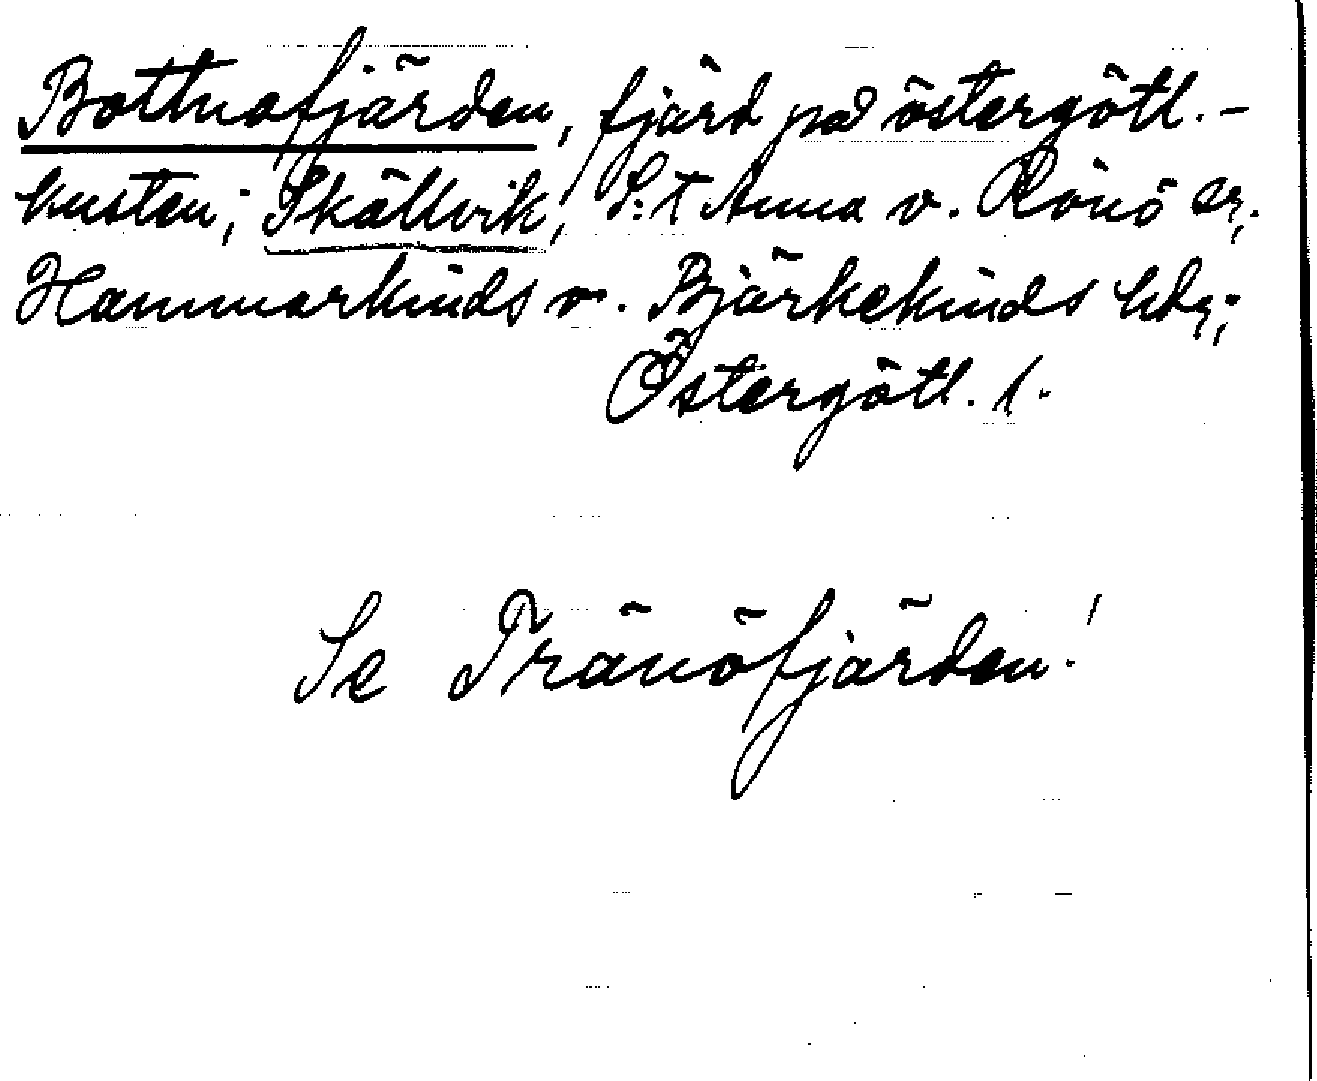 Bottnafjärden, fjärd på östergötl.-
kusten; Skällvik, S:t Anna o. Rönö sr,
Hammarkinds o. Björkekinds hdr;
Östergötl. l.
Se Tränöfjärden!